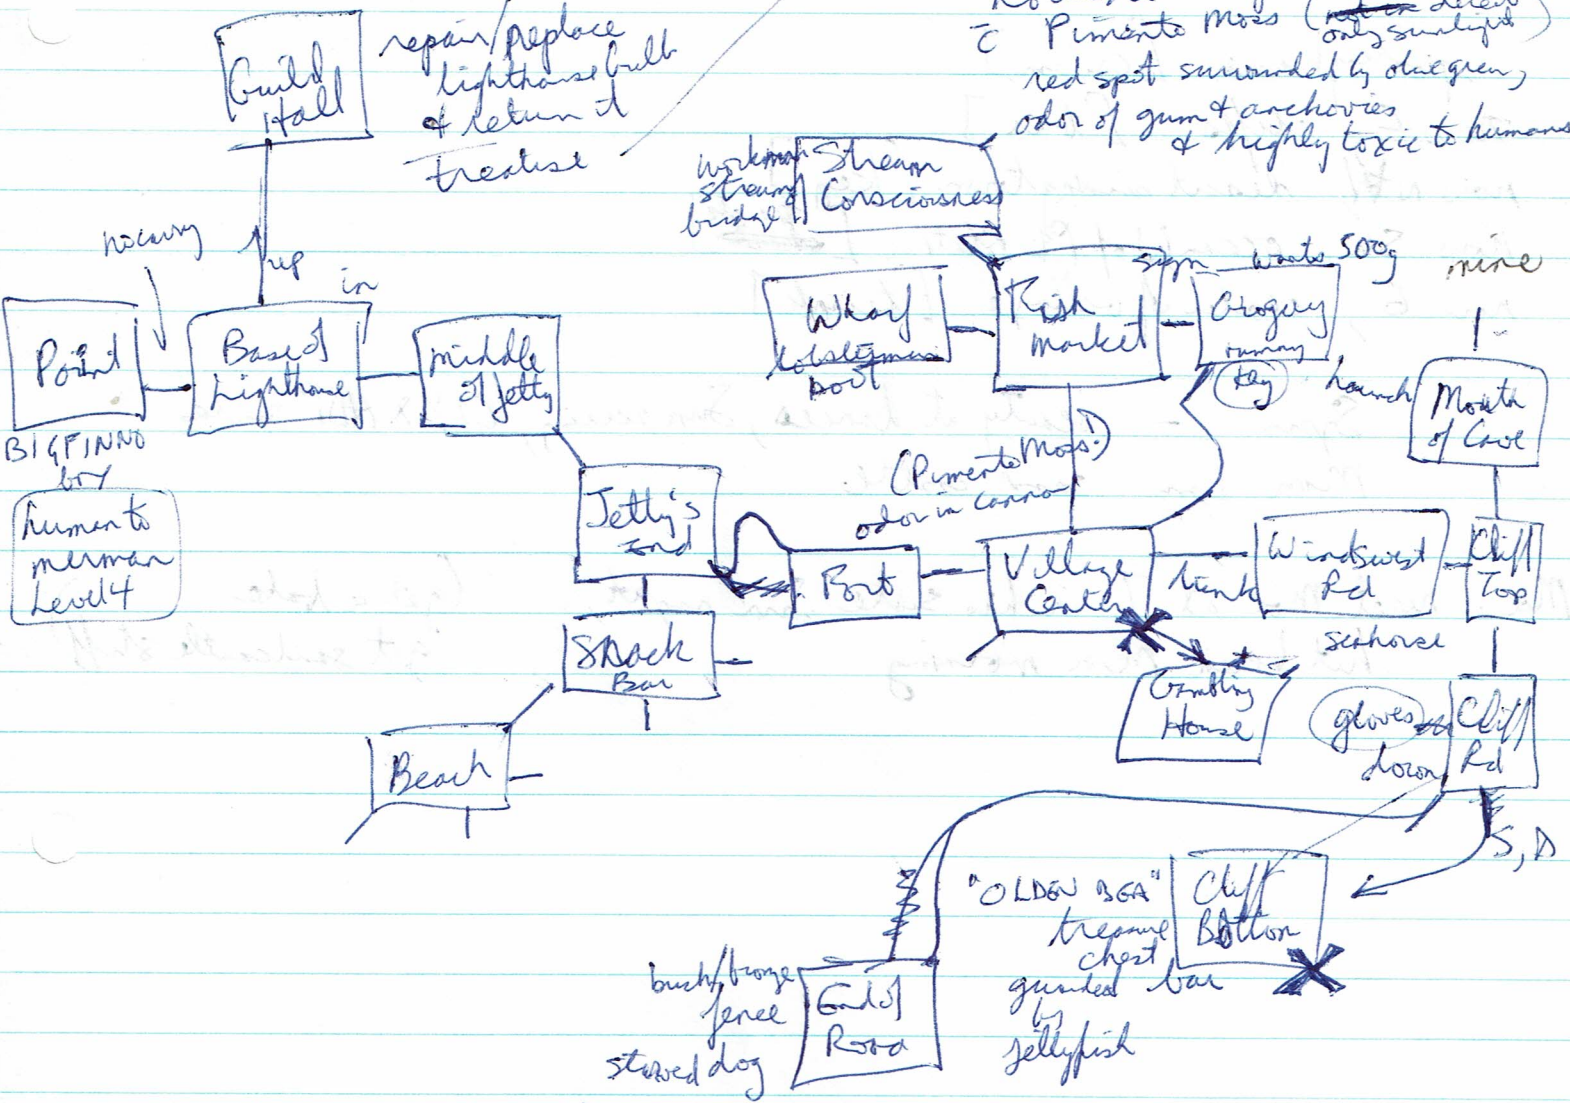 Guild
Hall
repair/replace
lighthouse bulb
& return it
treatise
Pimento Moss (
only sunlight)
red spot surrounded by olive green,
odor of gum & anchovies
& highly toxic to humans
workman
stream
bridge
Stream
Consciousness
up
in
Point
Base of
Lighthouse
Middle
of Jetty
BIGFINNO
human to
merman
Level 4
Wharf
lobsterman
Fish
market
sign wants 500g
Grogery
key
mine
Mouth
of Cave
(Pimento Moss!)
odor in
Jetty's
End
Port
Village
Center
Windswept
Rd
Cliff
Top
seahorse
Snack
Bar
Beach
Gambling
House
gloves
down
Cliff
Rd
S, D
"OLDEN BEA"
treasure
chest
guarded bar
by
jellyfish
Cliff
Bottom
fence
starved dog
End of
Road